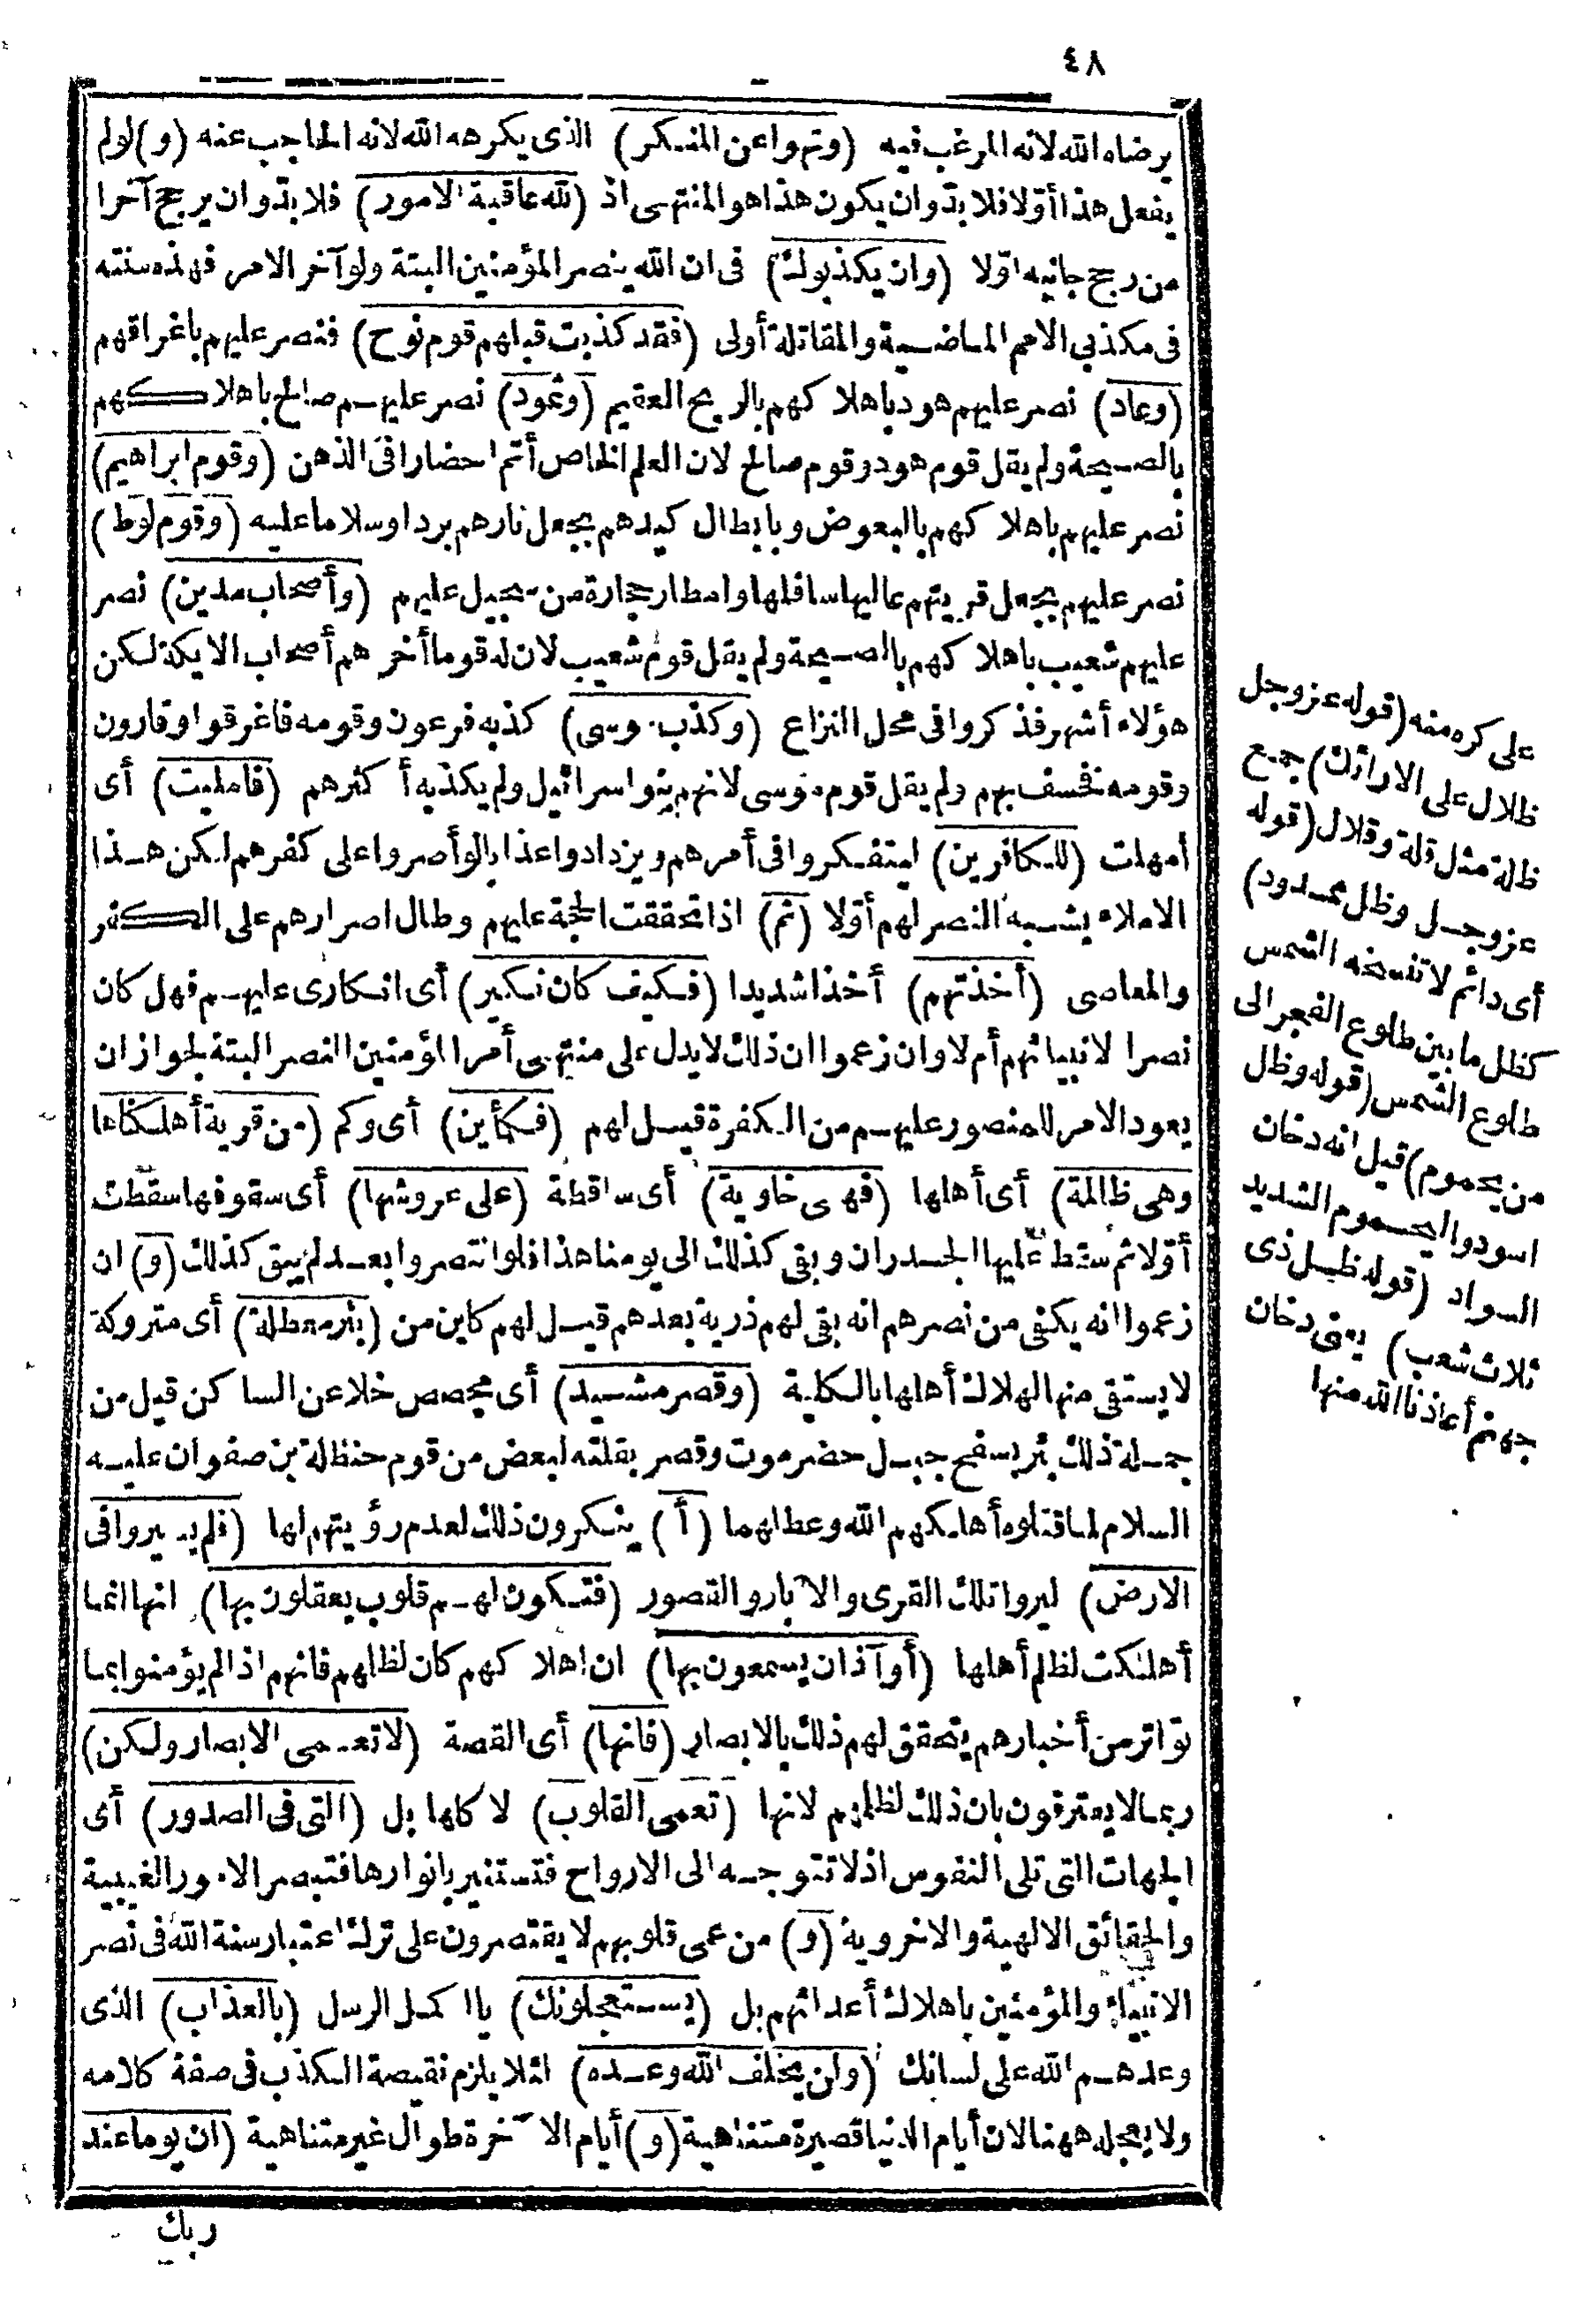 ٤٨
يرضاه الله لانه المرغب فيه (ونهوا عن المنكر) الذى يكرهه الله لانه الحاجب عنه (و) لولم
يفعل هذا أوّلا فلا بدّوان يكون هذا هو المنتهى اذ (لله عاقبة الامور) فلا بدّوان يرجح آخرا
من رجح جانبه اوّلا (وان يكذبوك) فى ان الله ينصر المؤمنين البتة ولو آخر الامر فهذه سنته
فى مكذبي الامم الماضية والمقاتلة أولى (فقد كذبت قبلهم قوم نوح) فنصر عليهم باغراقهم
(وعاد) نصر عليهم هود باهلاكهم بالريح العقيم (وثمود) نصر عليهم صالح باهلاكهم
بالصيحة ولم يقل قوم هود وقوم صالح لان العلم الخاص أتم احضارا فى الذهن (وقوم ابراهيم)
نصر عليهم باهلاكهم بالبعوض وبابطال كيدهم بجعل نارهم بردا وسلاما عليه (وقوم لوط)
نصر عليهم بجعل قريتهم عاليها سافلها وامطار حجارة من سجيل عليهم (وأصحاب مدين) نصر
عليهم شعيب باهلاكهم بالصيحة ولم يقل قوم شعيب لان له قوما أخر هم أصحاب الايكة لكن
هؤلاء أشهر فذكروا فى محل النزاع (وكذب موسى) كذبه فرعون وقومه فاغرقوا وقارون
وقومه فخسف بهم ولم يقل قوم موسى لانهم بنو اسرائيل ولم يكذبه أكثرهم (فامليت) أى
أمهلت (للكافرين) ليتفكروا فى أمرهم ويزدادوا عذابا لو أصروا على كفرهم لكن هذا
الاملاء يشبه النصر لهم أوّلا (ثم) اذا تحققت الحجة عليهم وطال اصرارهم على الكفر
والمعاصى (أخذتهم) أخذا شديدا (فكيف كان نكير) أى انكارى عليهم فهل كان
نصرا لانبيائهم أم لا وان زعموا ان ذلك لا يدل على منتهى أمر المؤمنين النصر البتة لجواز ان
يعود الامر للمنصور عليهم من الكفرة قيل لهم (فكأين) أى وكم (من قرية أهلكناها
وهى ظالمة) أى أهلها (فهى خاوية) أى ساقطة (على عروشها) أى سقوفها سقطت
أوّلا ثم سقط عليها الجدران وبقى كذلك الى يومنا هذا فلو انتصروا بعد لم يبق كذلك (و) ان
زعموا انه يكفى من نصرهم انه بقى لهم ذرية بعدهم قيل لهم كاين من (بئر معطلة) أى متروكة
لا يستقى منها لهلاك أهلها بالكلية (وقصر مشيد) أى مجصص خلا عن الساكن قيل من
جملة ذلك بئر بسفح جبل حضرموت وقصر بقلته لبعض من قوم حنظلة بن صفوان عليه
السلام لما قتلوه أهلكهم الله وعطلهما (أ) ينكرون ذلك لعدم رؤيتهم لها (فلم يسيروا فى
الارض) ليروا تلك القرى والآبار والقصور (فتكون لهم قلوب يعقلون بها) انها انما
أهلكت لظلم أهلها (أو آذان يسمعون بها) ان اهلاكهم كان لظلمهم فانهم اذا لم يؤمنوا بما
تواتر من أخبارهم يتحقق لهم ذلك بالابصار (فانها) أى القصة (لا تعمى الابصار ولكن)
ربما لا يعترفون بان ذلك لظلمهم لانها (تعمى القلوب) لا كلها بل (التى فى الصدور) أى
الجهات التى تلى النفوس اذ لا تتوجه الى الارواح فتستنير بانوارها فتبصر الامور الغيبية
والحقائق الالهية والاخروية (و) من عمى قلوبهم لا يقتصرون على ترك اعتبار سنة الله فى نصر
الانبياء والمؤمنين باهلاك أعدائهم بل (يستعجلونك) يا اكمل الرسل (بالعذاب) الذى
وعدهم الله على لسانك (ولن يخلف الله وعده) لئلا يلزم نقيصة الكذب فى صفة كلامه
ولا يعجله ههنا لان أيام الدنيا قصيرة متناهية (و) أيام الآخرة طوال غير متناهية (ان يوما عند
ربك
على كره منه (قوله عز وجل
ظلال على الارائك) جمع
ظلة مثل قلة وقلال (قوله
عز وجل وظل ممدود)
أى دائم لا تنسخه الشمس
كظل ما بين طلوع الفجر الى
طلوع الشمس (قوله وظل
من يحموم) قيل انه دخان
اسود واليحموم الشديد
السواد (قوله ظل ذى
ثلاث شعب) يعنى دخان
جهنم أعاذنا الله منها